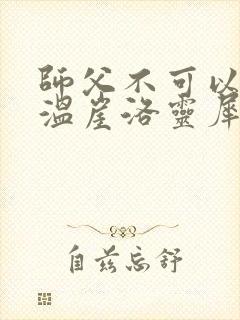 師父不可以
溫崖洛靈犀
自茲忘舒